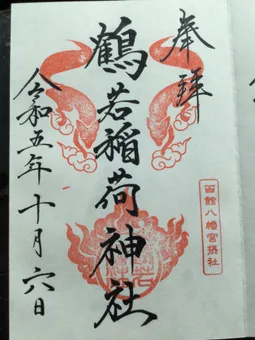 奉拝
鶴若稲荷神社
函館八幡宮摂社
令和五年十月六日